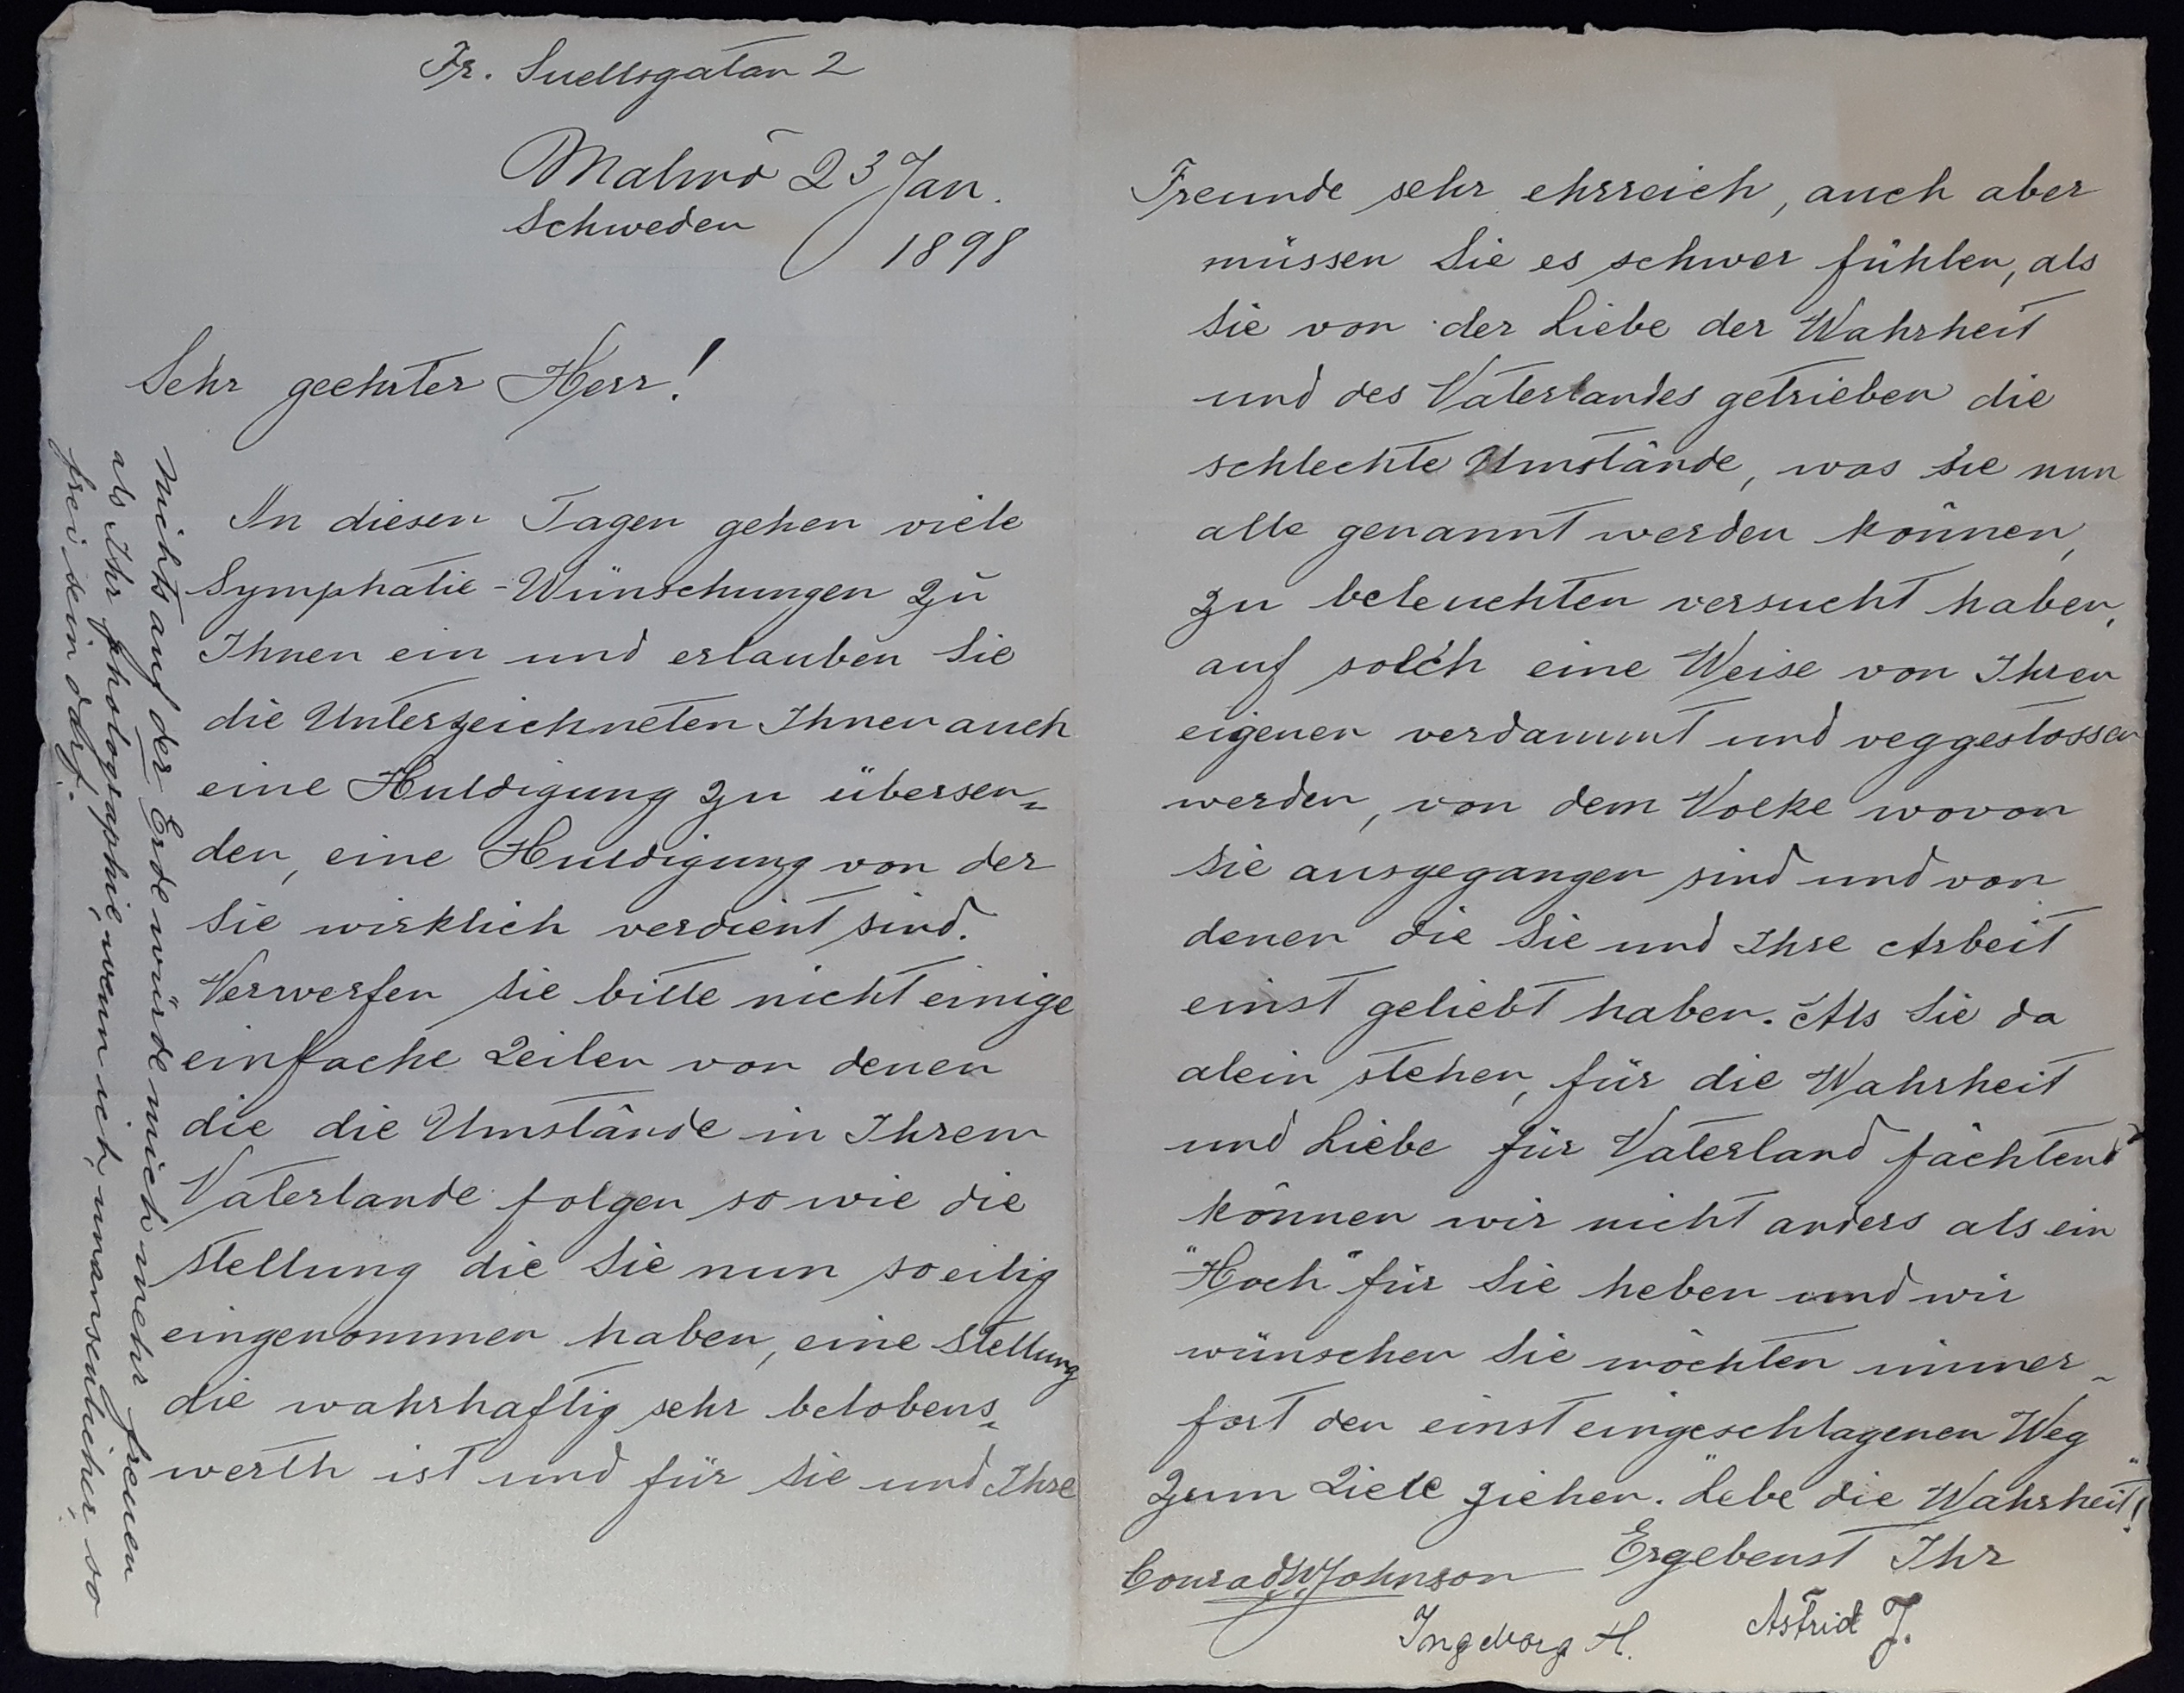 Fr. Suellsgatan 2
Malmö 23 Jan.
Schweden
1898
Sehr geehrter Herr!
In diesen Tagen gehen viele
Symphatie-Wünschungen zu
Ihnen ein und erlauben Sie
die Unterzeichneten Ihnen auch
eine Huldigung zu übersen=
den, eine Huldigung von der
Sie wirklich verdient sind.
Verwerfen Sie bitte nicht einige
einfache Zeilen von denen
die die Umstände in Ihrem
Vaterlande folgen so wie die
Stellung die Sie nun so eilig
eingenommen haben, eine Stellung
die wahrhaftig sehr belobens=
werth ist und für Sie und Ihre
Freunde sehr ehrreich, auch aber
müssen Sie es schwer fühlen, als
Sie von der Liebe der Wahrheit
und des Vaterlandes getrieben die
schlechte Umstände, was sie nun
alle genannt werden können,
zu beleuchten versucht haben,
auf solch eine Weise von Ihren
eigenen verdammt und veggestossen
werden, von dem Volke wovon
Sie ausgegangen sind und von
denen die Sie und Ihre Arbeit
einst geliebt haben. Als Sie da
alein stehen, für die Wahrheit
und Liebe für Vaterland fächtend
können wir nicht anders als ein
"Hoch" für Sie heben und wir
wünschen Sie möchten immer-
fort den einst eingeschlagenen Weg
zum Ziele ziehen. "Lebe die Wahrheit"!
Ergebenst Ihr
Conrad W Johnson
Ingeborg H. Astrid J.
Nichts auf der Erde würde mich mehr freuen
als Ihr photographie, wenn ich unansenlicher, so
frei sein darf.